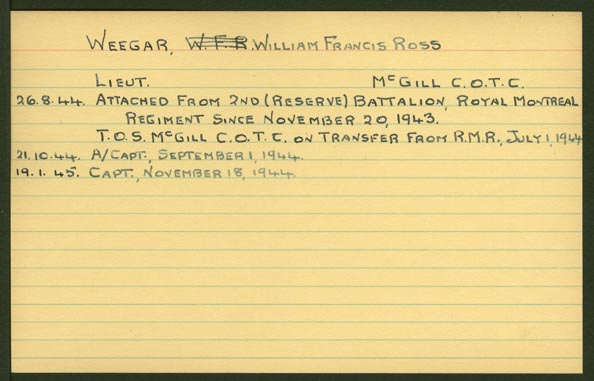 WEEGAR, W.F.R. WILLIAM FRANCIS ROSS
LIEUT. McGILL C.O.T.C.
26.8.44. ATTACHED FROM 2ND (RESERVE) BATTALION, ROYAL MONTREAL
REGIMENT SINCE NOVEMBER 20, 1943.
T.O.S. McGILL C.O.T.C. ON TRANSFER FROM R.M.R., JULY 1, 1944
21.10.44. A/CAPT., SEPTEMBER 1, 1944.
19.1.45. CAPT., NOVEMBER 18, 1944.